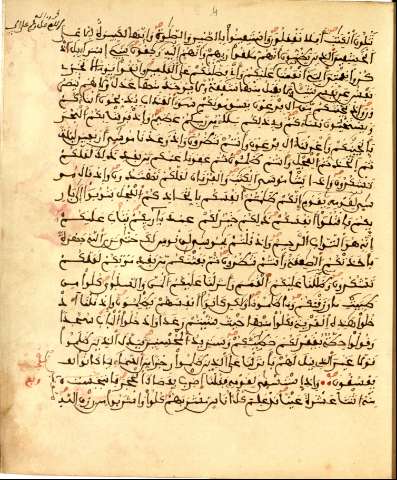 تتلون الكتب أفلا تعقلون واستعينوا بالصبر والصلوة وإنها لكبيرة إلا على
الخشعين الذين يظنون أنهم ملقوا ربهم وأنهم إليه رجعون يبني إسرءيل ا
ذكروا نعمتي التي أنعمت عليكم وأني فضلتكم على العلمين واتقوا يوما لا تجزي
نفس عن نفس شيئا ولا يقبل منها شفعة ولا يوخذ منها عدل ولا هم ينصر
ون وإذ نجينكم من ءال فرعون يسومونكم سوء العذاب يذبحون أبناءكم
ويستحيون نساءكم وفي ذلكم بلاء من ربكم عظيم وإذ فرقنا بكم البحر
فأنجينكم وأغرقنا ءال فرعون وأنتم تنظرون وإذ وعدنا موسى أربعين ليلة
ثم اتخذتم العجل من بعده وأنتم ظلمون ثم عفونا عنكم من بعد ذلك لعلكم
تشكرون وإذ ءاتينا موسى الكتب والفرقان لعلكم تهتدون وإذ قال مو
سى لقومه يقوم إنكم ظلمتم أنفسكم باتخاذكم العجل فتوبوا إلى بار
ئكم فاقتلوا أنفسكم ذلكم خير لكم عند بارئكم فتاب عليكم
إنه هو التواب الرحيم وإذ قلتم يموسى لن نومن لك حتى نرى الله جهرة
فأخذتكم الصعقة وأنتم تنظرون ثم بعثنكم من بعد موتكم لعلكم
تشكرون وظللنا عليكم الغمم وأنزلنا عليكم المن والسلوى كلوا من
طيبت ما رزقنكم وما ظلمونا ولكن كانوا أنفسهم يظلمون وإذ قلنا اد
خلوا هذه القرية فكلوا منها حيث شئتم رغدا وادخلوا الباب سجدا
وقولوا حطة يغفر لكم خطيكم وسنزيد المحسنين فبدل الذين ظلموا
قولا غير الذي قيل لهم فأنزلنا على الذين ظلموا رجزا من السماء بما كانوا
يفسقون وإذ استسقى موسى لقومه فقلنا اضرب بعصاك الحجر فانفجرت
منه اثنتا عشرة عينا قد علم كل أناس مشربهم كلوا واشربوا من رزق الله